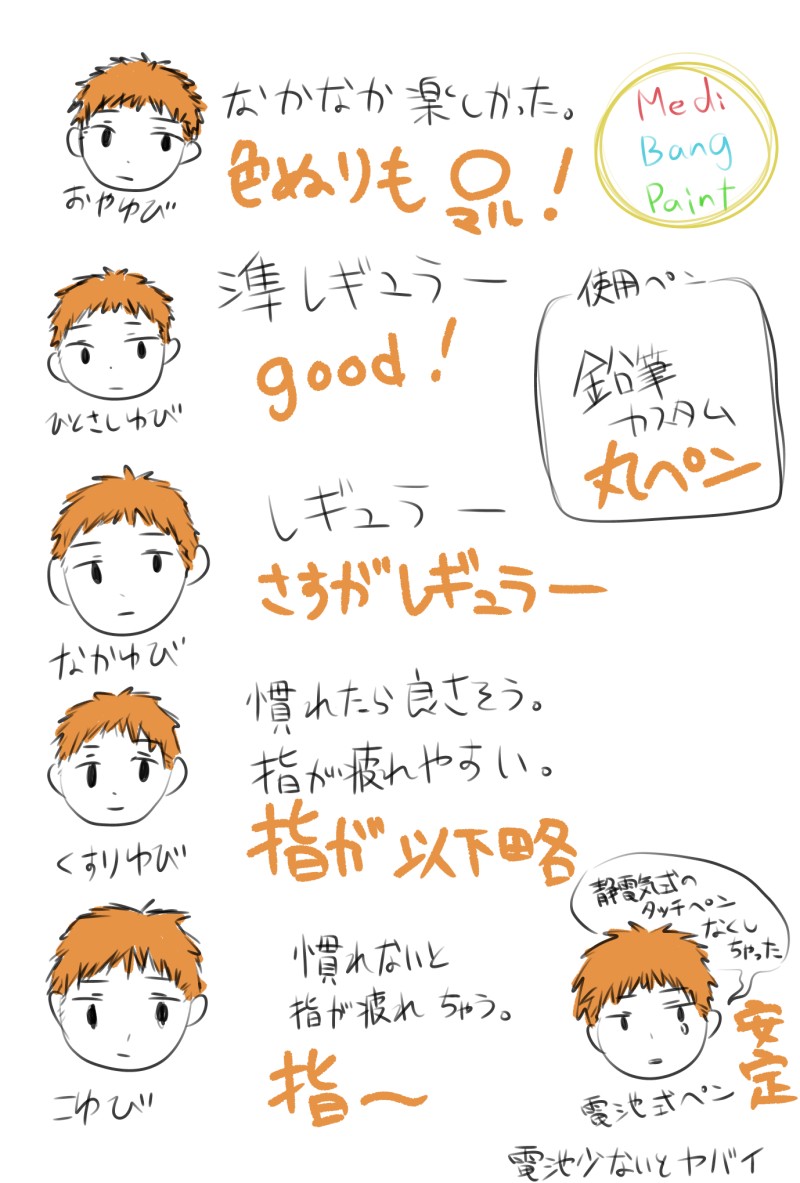 なかなか楽しかった。
色ぬりも〇!
マル
おやゆび
Medi
Bang
Paint
準レギュラー
good!
ひとさしゆび
使用ペン
鉛筆
カスタム
丸ペン
レギュラー
さすがレギュラー
なかゆび
慣れたら良さそう。
指が疲れやすい。
指が以下略
くすりゆび
慣れないと
指が疲れちゃう。
指〜
こゆび
静電気式の
タッチペン
なくし
ちゃった
安定
電池式ペン
電池少ないとヤバイ